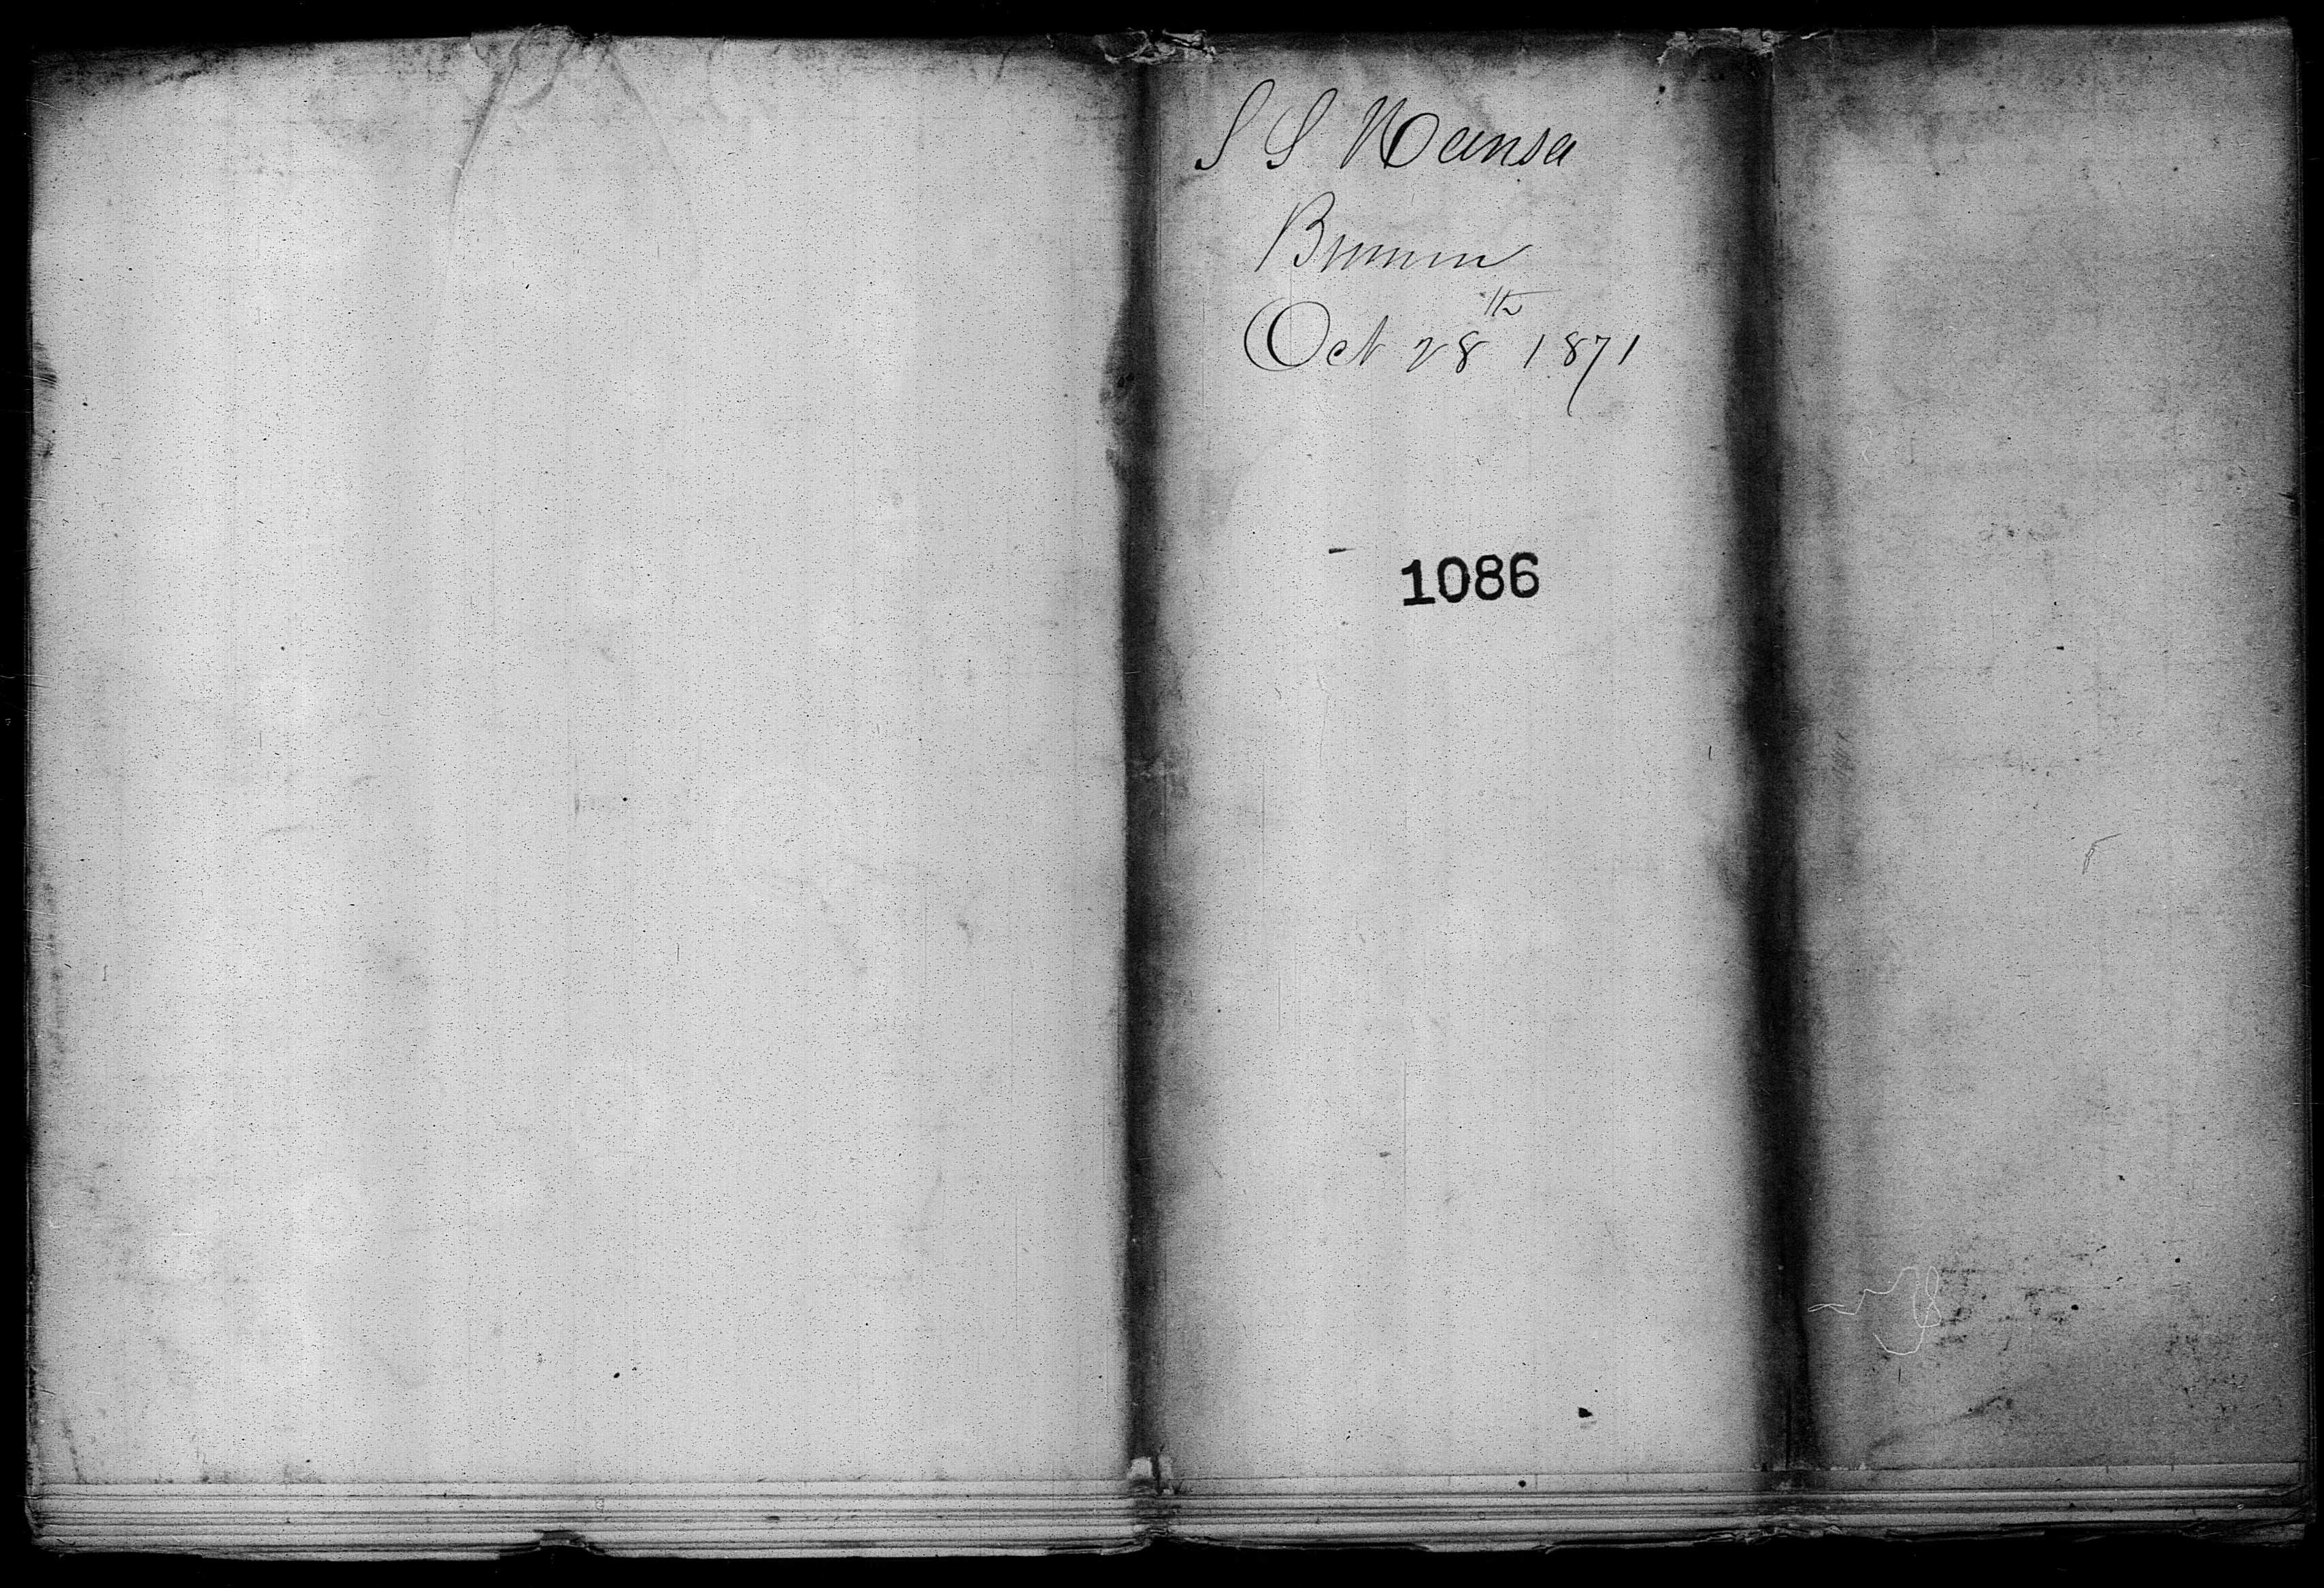 S S Hansa
Bremen
Oct 28th 1871
1086